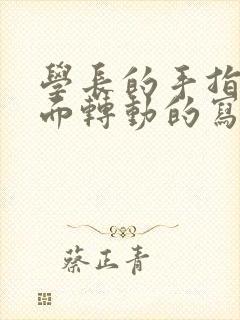 學長的手指
而轉動的寫
蔡正青